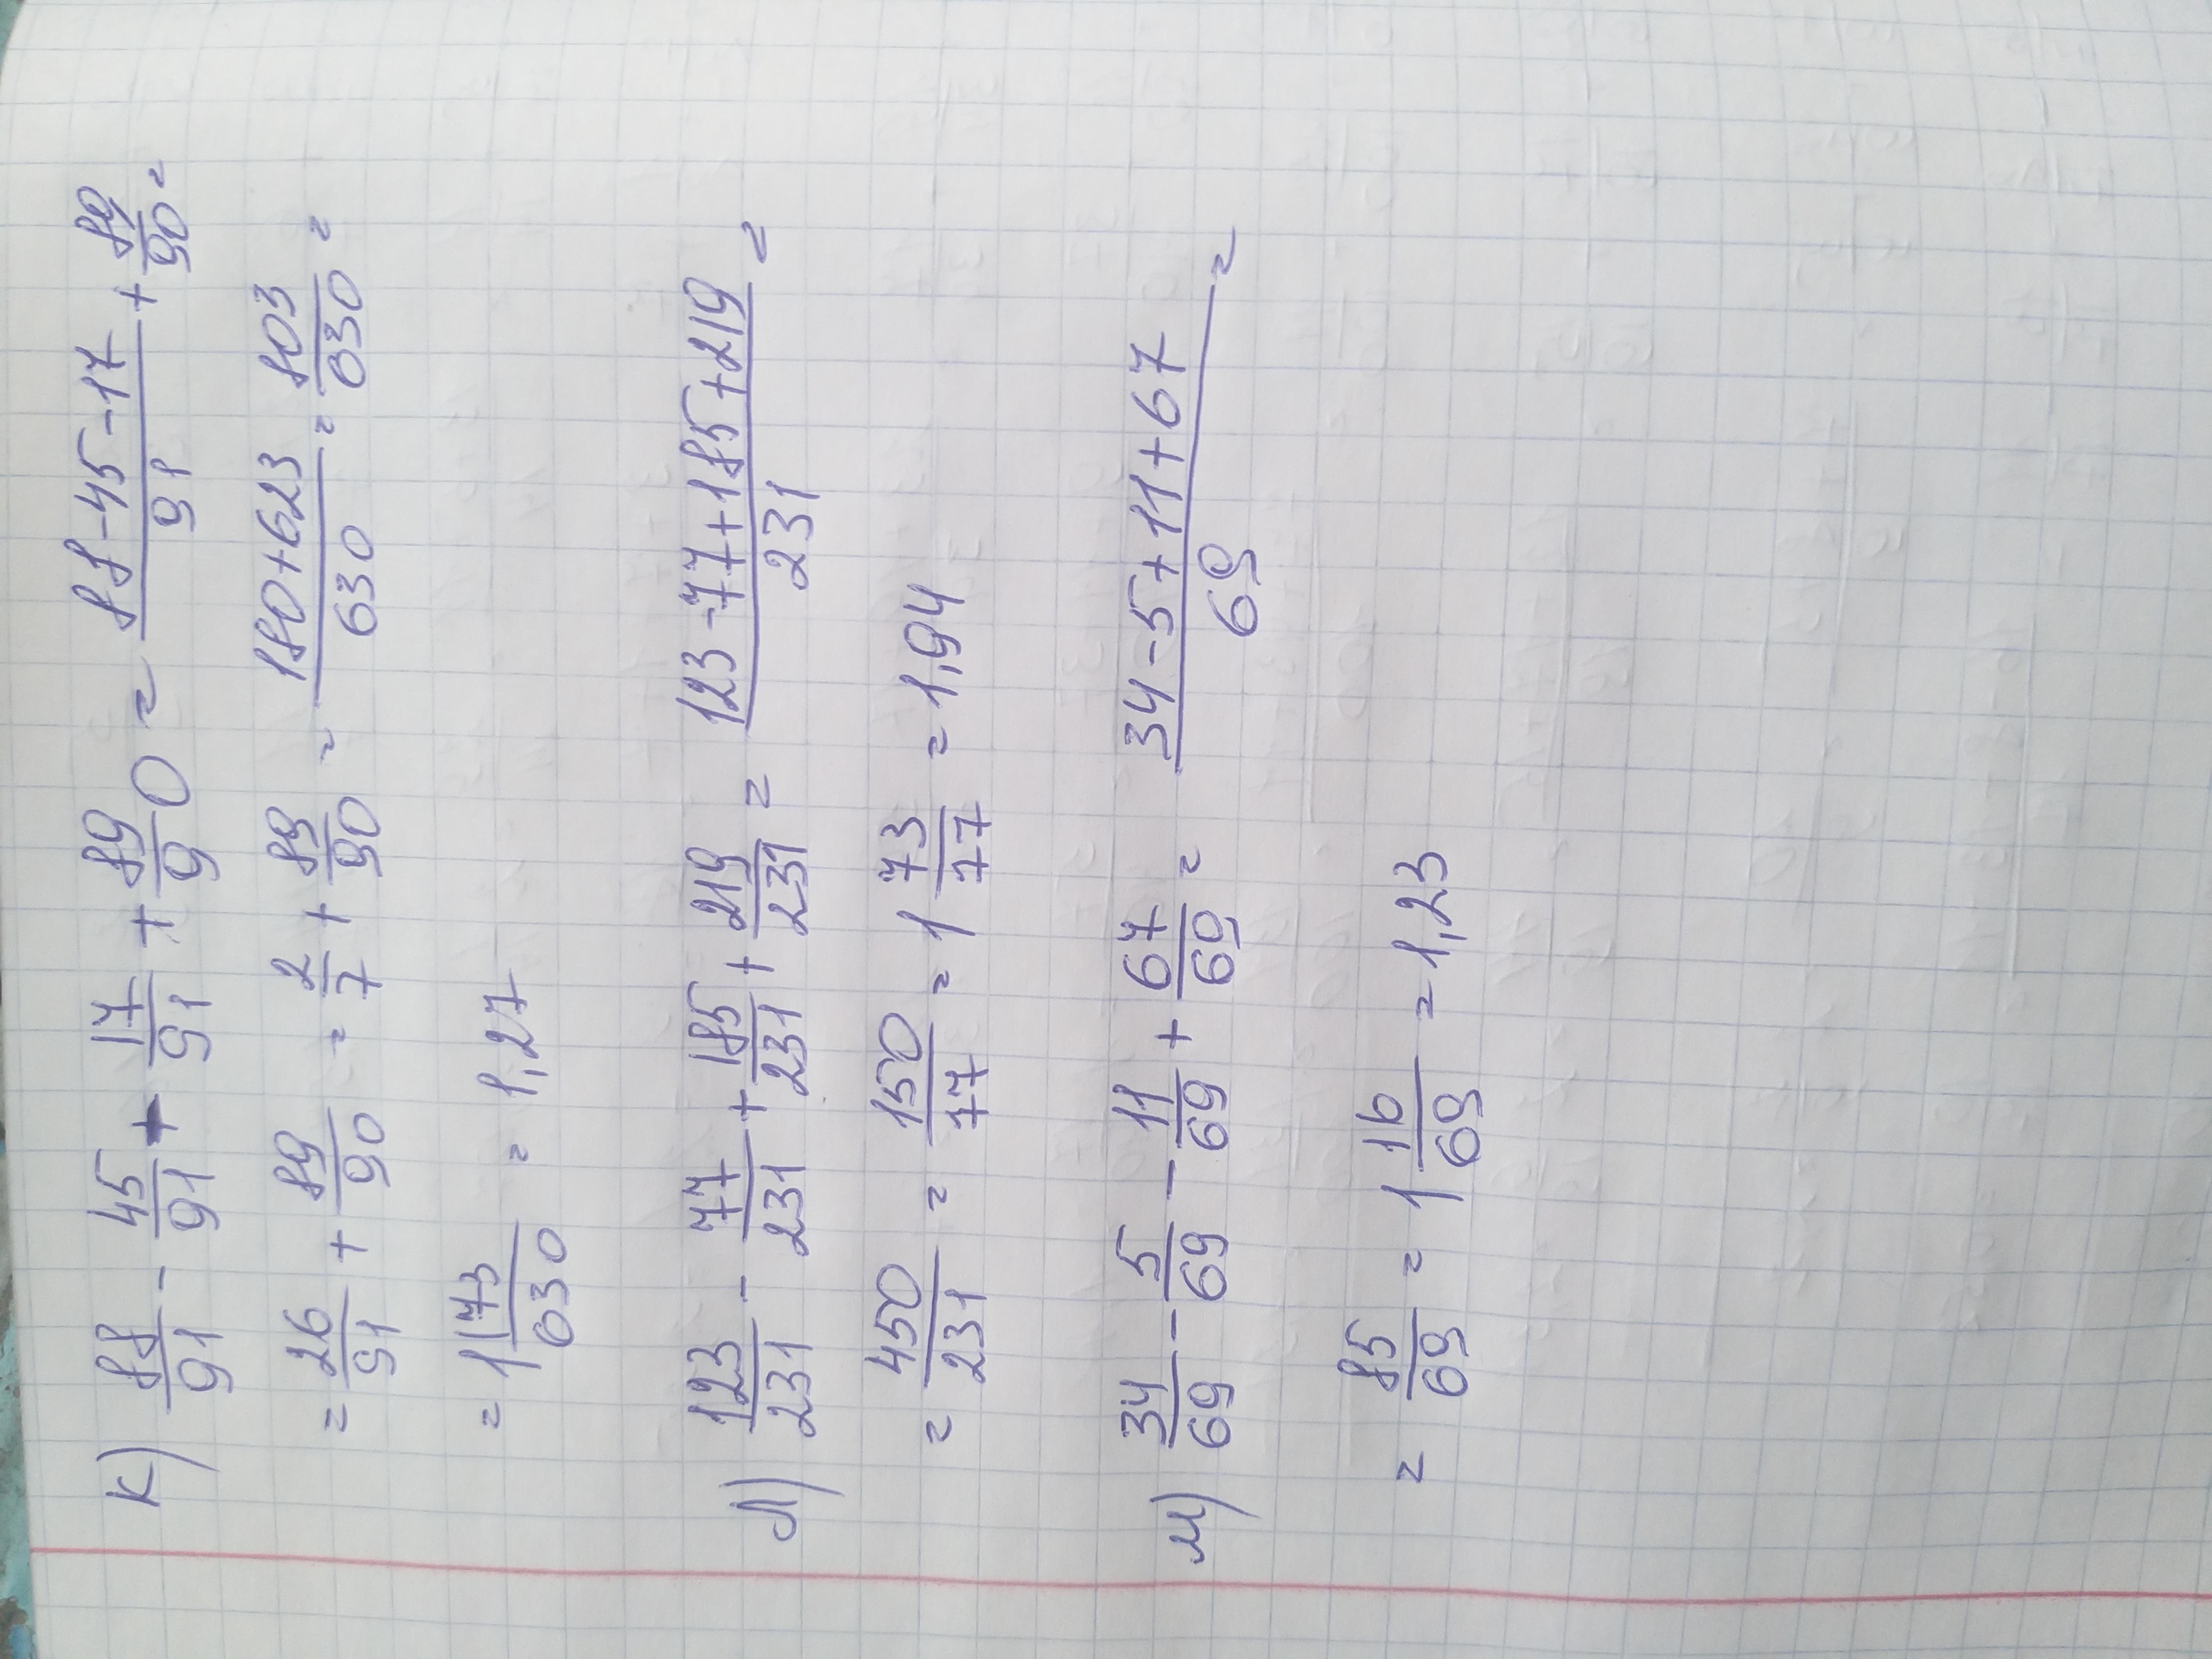 к) 88/91 - 45/91 + 17/91 + 89/90 = (88-45-17)/91 + 89/90 =
= 26/91 + 89/90 = 2/7 + 89/90 = (180+623)/630 = 803/630 =
= 1 173/630 = 1,27
л) 123/231 - 77/231 + 185/231 + 219/231 = (123-77+185+219)/231 =
= 450/231 = 150/77 = 1 73/77 = 1,94
м) 34/69 - 5/69 - 11/69 + 67/69 = (34-5+11+67)/69 =
= 85/69 = 1 16/69 = 1,23